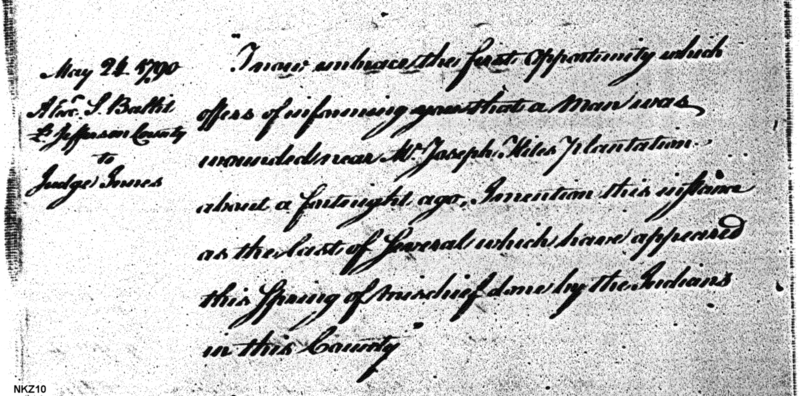 May 24 1790
Alexr. S. Bullit
Lt. Jefferson County
to
Judge Innes
"I now embrace the first opportunity which
offers of informing you that a Man was
wounded near Mr. Joseph Hites plantation
about a fortnight ago, I mention this instance
as the last of several which have appeared
this Spring of mischief done by the Indians
in this County"
NKZ10